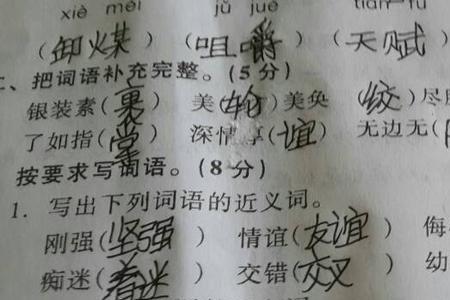 xiè méi jǔ jué tiān fù
（卸煤）（咀嚼）（天赋）
、把词语补充完整。(5分)
银装素(裹) 美(轮)美奂 (绞)尽
了如指(掌) 深情厚(谊) 无边无(
按要求写词语。(8分)
1. 写出下列词语的近义词。
刚强(坚强) 情谊(友谊) 侮
痴迷(着迷 交错(交叉) 幼